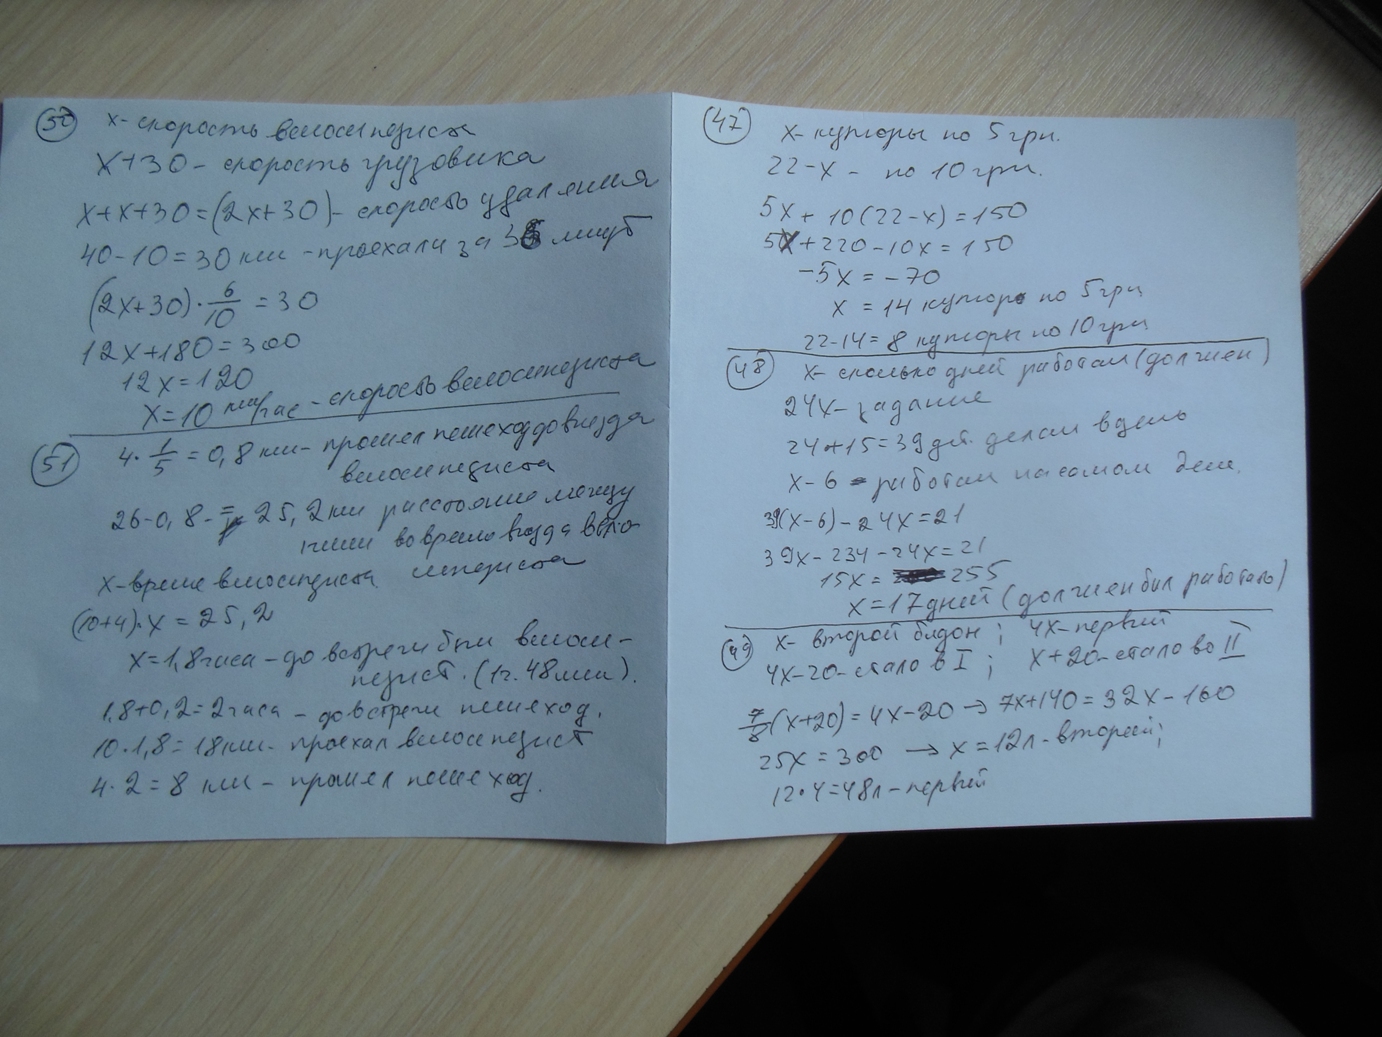 50 х- скорость велосипедиста
х+30 - скорость грузовика
х+х+30=(2х+30)- скорость удаления
40-10=30 км - проехали за 36 минут
(2х+30)·6/10=30
12х+180=300
12х=120
х=10 км/час - скорость велосипедиста
51 4·1/5=0,8 км- прошел пешеход до выезда
велосипедиста
26-0,8-= 25,2 км расстояние между
ними во время выезда вело-
сипедиста
х-время велосипедиста
(10+4)·х=25,2
х=1,8 часа - до встречи был велоси-
педист. (1г. 48мин).
1,8+0,2=2часа - до встречи пешеход.
10·1,8=18км- проехал велосипедист
4·2=8 км - прошел пешеход.
47 х- купюры по 5 грн.
22-х - по 10 грн.
5х+10(22-х)=150
5х+220-10х=150
-5х=-70
х=14 купюр по 5 грн
22-14=8 купюры по 10 грн
48 х- сколько дней работал (должен)
24х- задание
24+15=39 дет. делал в день
х-6 - работал на самом деле.
39(х-6)-24х=21
39х-234-24х=21
15х= 255
х=17 дней (должен был работать)
49 х- второй бидон; 4х-первый
4х-20-стало в I; х+20-стало во II
7/8(х+20)=4х-20→7х+140=32х-160
25х=300 → х=12л-второй;
12·4=48л-первый